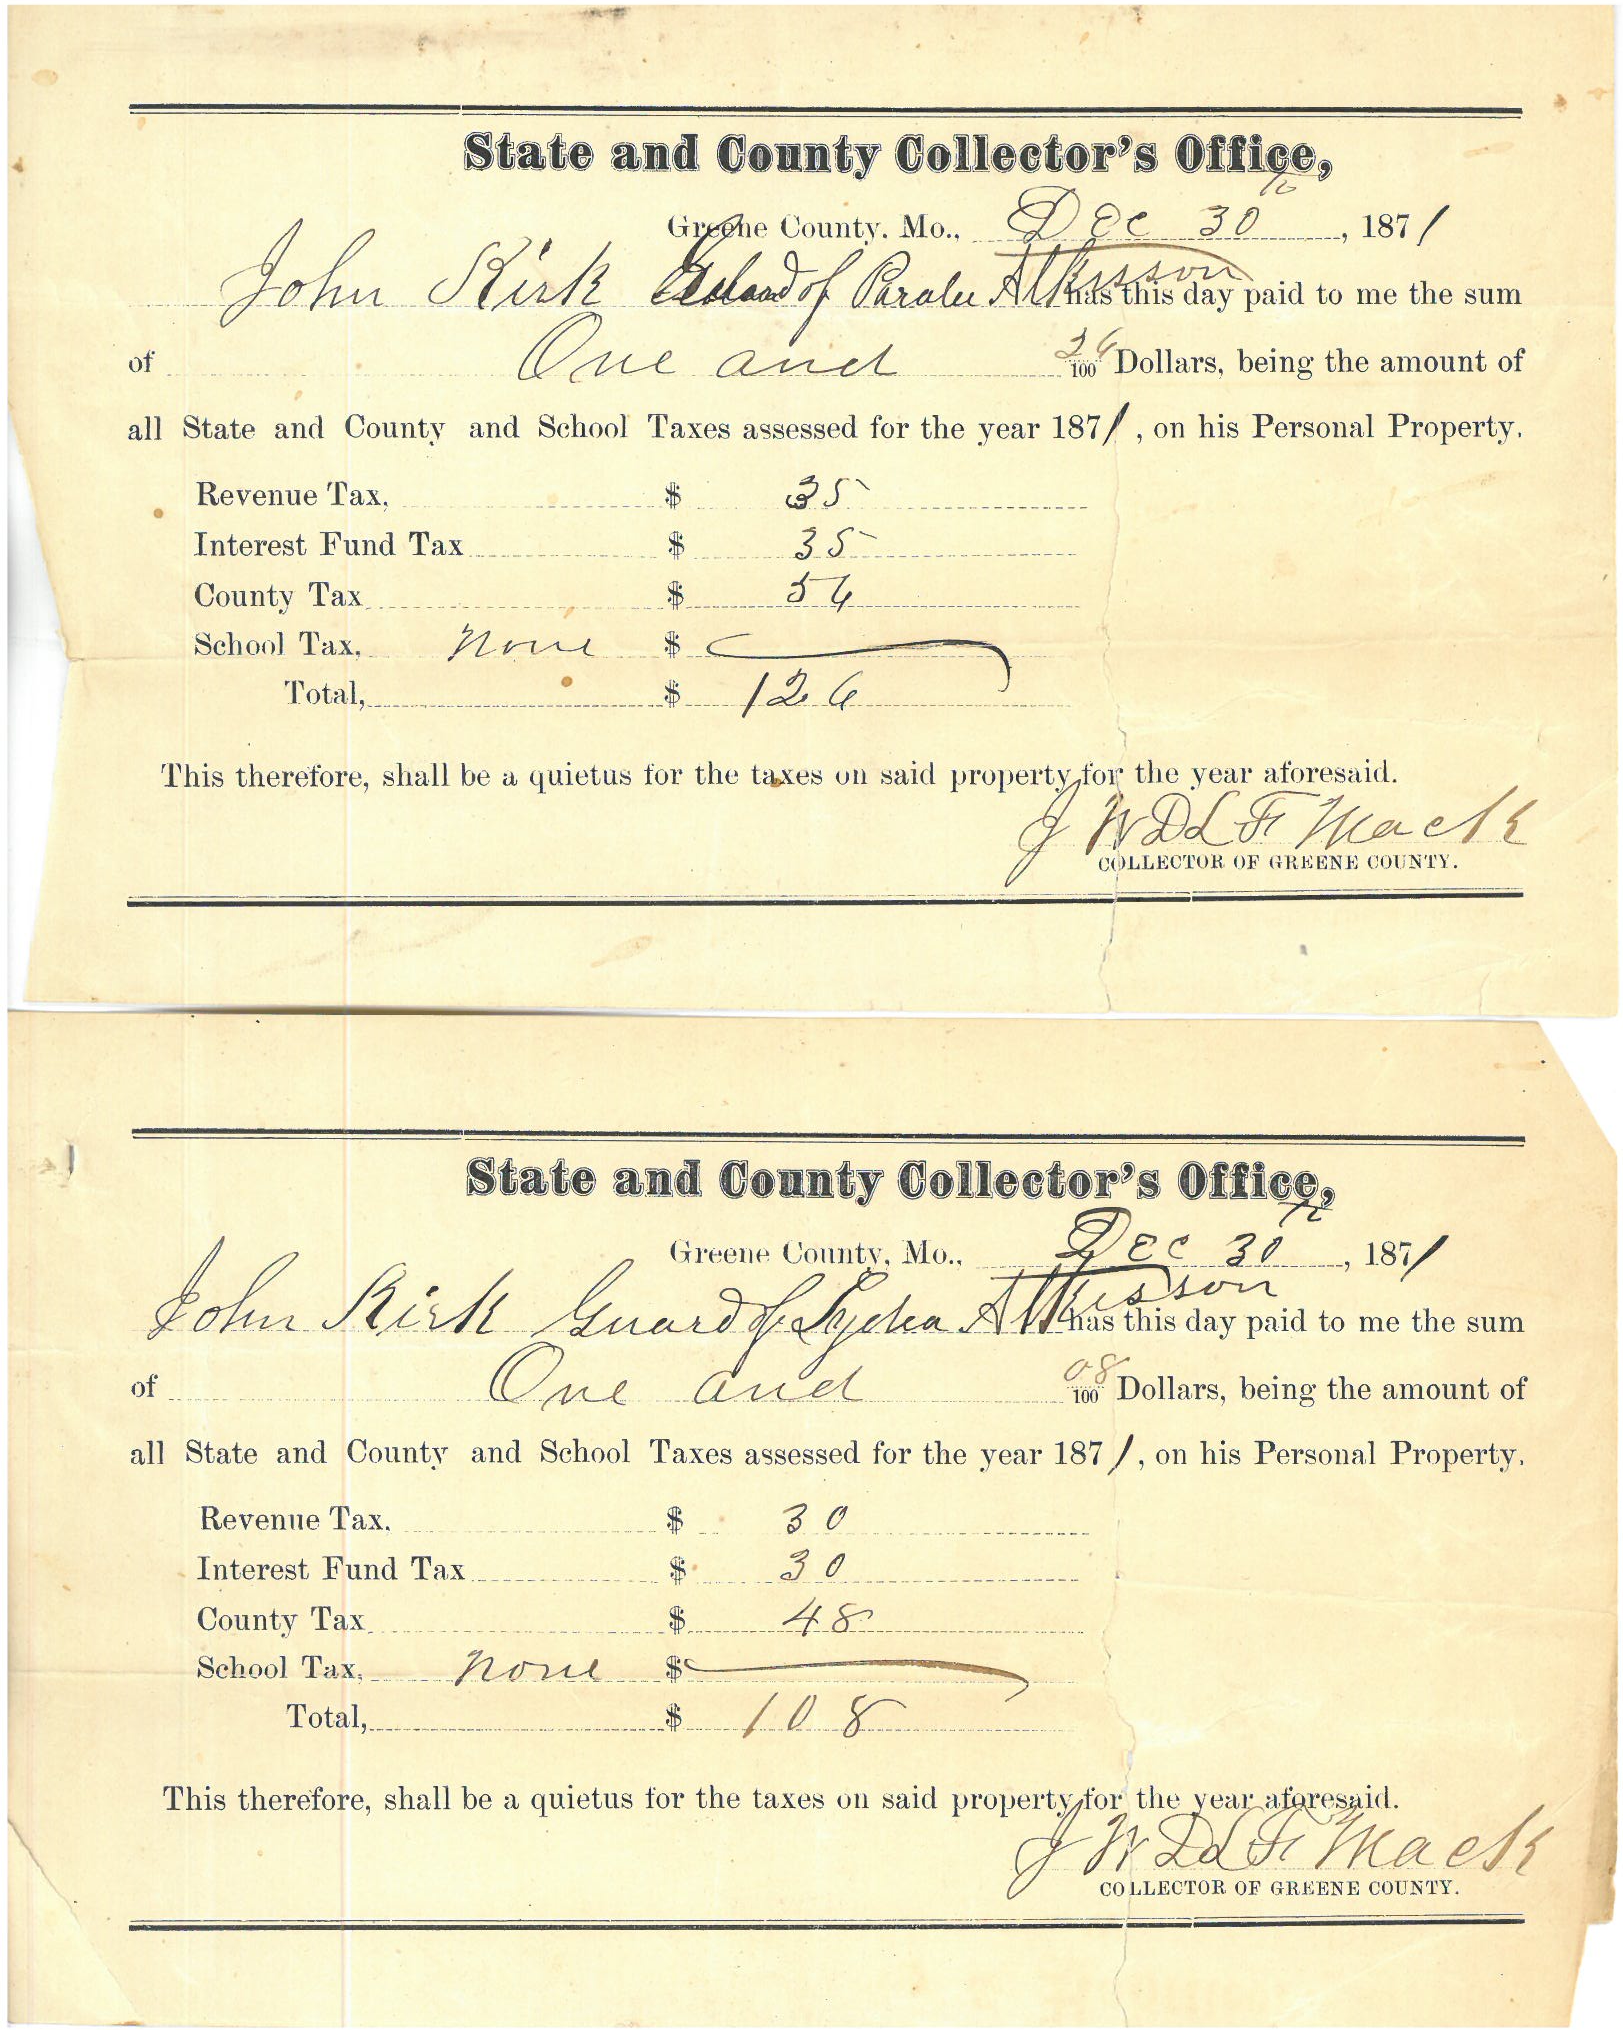 State and County Collector's Office,
Greene County, Mo., Dec 30th, 1871
John Kirk Guard of Atkisson has this day paid to me the sum
of One and 26/100 Dollars, being the amount of
all State and County and School Taxes assessed for the year 1871, on his Personal Property.
Revenue Tax, $ 35
Interest Fund Tax $ 35
County Tax $ 56
School Tax, None $
Total, $ 126
This therefore, shall be a quietus for the taxes on said property for the year aforesaid.
J W D L F Mack
COLLECTOR OF GREENE COUNTY.
State and County Collector's Office,
Greene County, Mo., Dec 30th, 1871
John Kirk Guard of Lydia Atkisson has this day paid to me the sum
of One and 08/100 Dollars, being the amount of
all State and County and School Taxes assessed for the year 1871, on his Personal Property.
Revenue Tax, $ 30
Interest Fund Tax $ 30
County Tax $ 48
School Tax, None $
Total, $ 108
This therefore, shall be a quietus for the taxes on said property for the year aforesaid.
J W D L F Mack
COLLECTOR OF GREENE COUNTY.